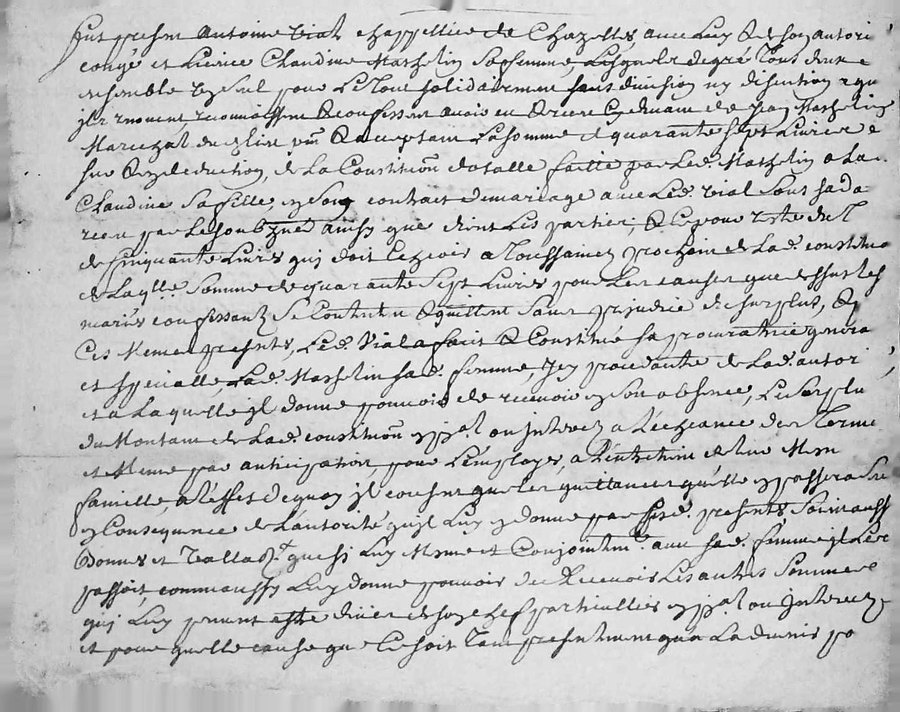 fut present Antoine Vial chappellier de Chazelles, avec luy & de son autori
congé et licence Claudine Mathelin sa femme, lesquels de gré tous deux e
ensemble & seul pour le tout solidairement sans division ny discution
ils renoncent, reconnoissent & confessent avoir eu & receu de Jean Mathelin
Marechal du & acceptant la somme de quarante sept livres
sur & en deduction, de la Constitution dotalle faitte par led. Mathelin a lad.
Claudine sa fille en son contract de mariage avec led. Vial sous sa datte
receu par le soubzné ainsy que dient les parties, & ce pour reste du
de cinquante livres qui doit a Toussaincts prochain de lad. constitution
de laqlle somme de quarante sept livres pour les causes que dessus les
mariés confessants se contentent & quittent sans prejudice du surplus, &
Ces memes presents, led. Vial a fait & constitué sa procuratrice generalle
et specialle, lad. Mathelin sad. femme, icy procedante de lad. autori
et a laquelle il donne pouvoir de recevoir en son absence, le surplus
du montant de lad. constitution en ppal ou interets a l'echeance des termes
et meme par anticipation pour l'employer, a l'entretien de leur
famille, a l'effet de quoy il consent que les quittances qu'elle en passera
en consequence de l'autorité qu'il luy en donne par cesd. presents soient aussy
bonnes et vallables que si luy meme et conjointemt. avec sad. femme il les
passoit, comme aussy luy donne pouvoir de recevoir les autres sommes
qui luy peuvent estre dües de par particulliers en ppal ou interets
et pour quelle cause que ce soit tant presentement qu'a l'advenir po